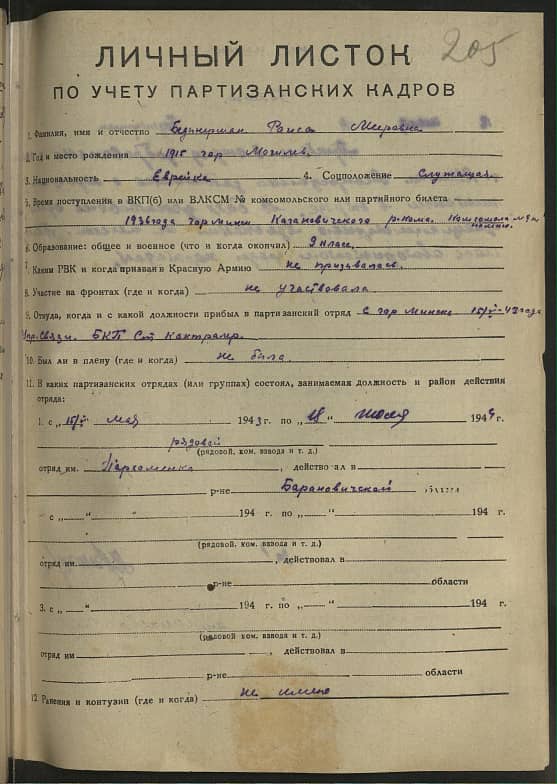 205
ЛИЧНЫЙ ЛИСТОК
ПО УЧЕТУ ПАРТИЗАНСКИХ КАДРОВ
1. Фамилия, имя и отчество Раиса Мееровна
2. Год и место рождения 1915 гор Могилев.
3. Национальность Еврейка 4. Соцположение Служащая.
5. Время поступления в ВКП(б) или ВЛКСМ № комсомольского или партийного билета
1936 года гор Минск Кагановичского р-кома. Комсомола
6. Образование: общее и военное (что и когда окончил) 9 класс.
7. Каким РВК и когда призван в Красную Армию не призывалась.
8. Участие на фронтах (где и когда) не участвовала
9. Откуда, когда и с какой должности прибыл в партизанский отряд с гор Минска 15/V-43 года
Упр. Связи.
10. Был ли в плену (где и когда) не была.
11. В каких партизанских отрядах (или группах) состоял, занимаемая должность и район действия
отряда:
1. с „15/V" мая 1943 г. по „18" июля 1944 г.
рядовой
(рядовой, ком. взвода и т. д.)
отряд им. Пархоменко, действовал в
р-не Барановичской области
с „ " 194 г. по „ " 194 г.
(рядовой, ком. взвода и т. д.)
отряд им. , действовал в
р-не области
3. с „ " 194 г. по „ " 194 г.
(рядовой ком. взвода и т. д.)
отряд им , действовал в
р-не области
12. Ранения и контузии (где и когда) не имею